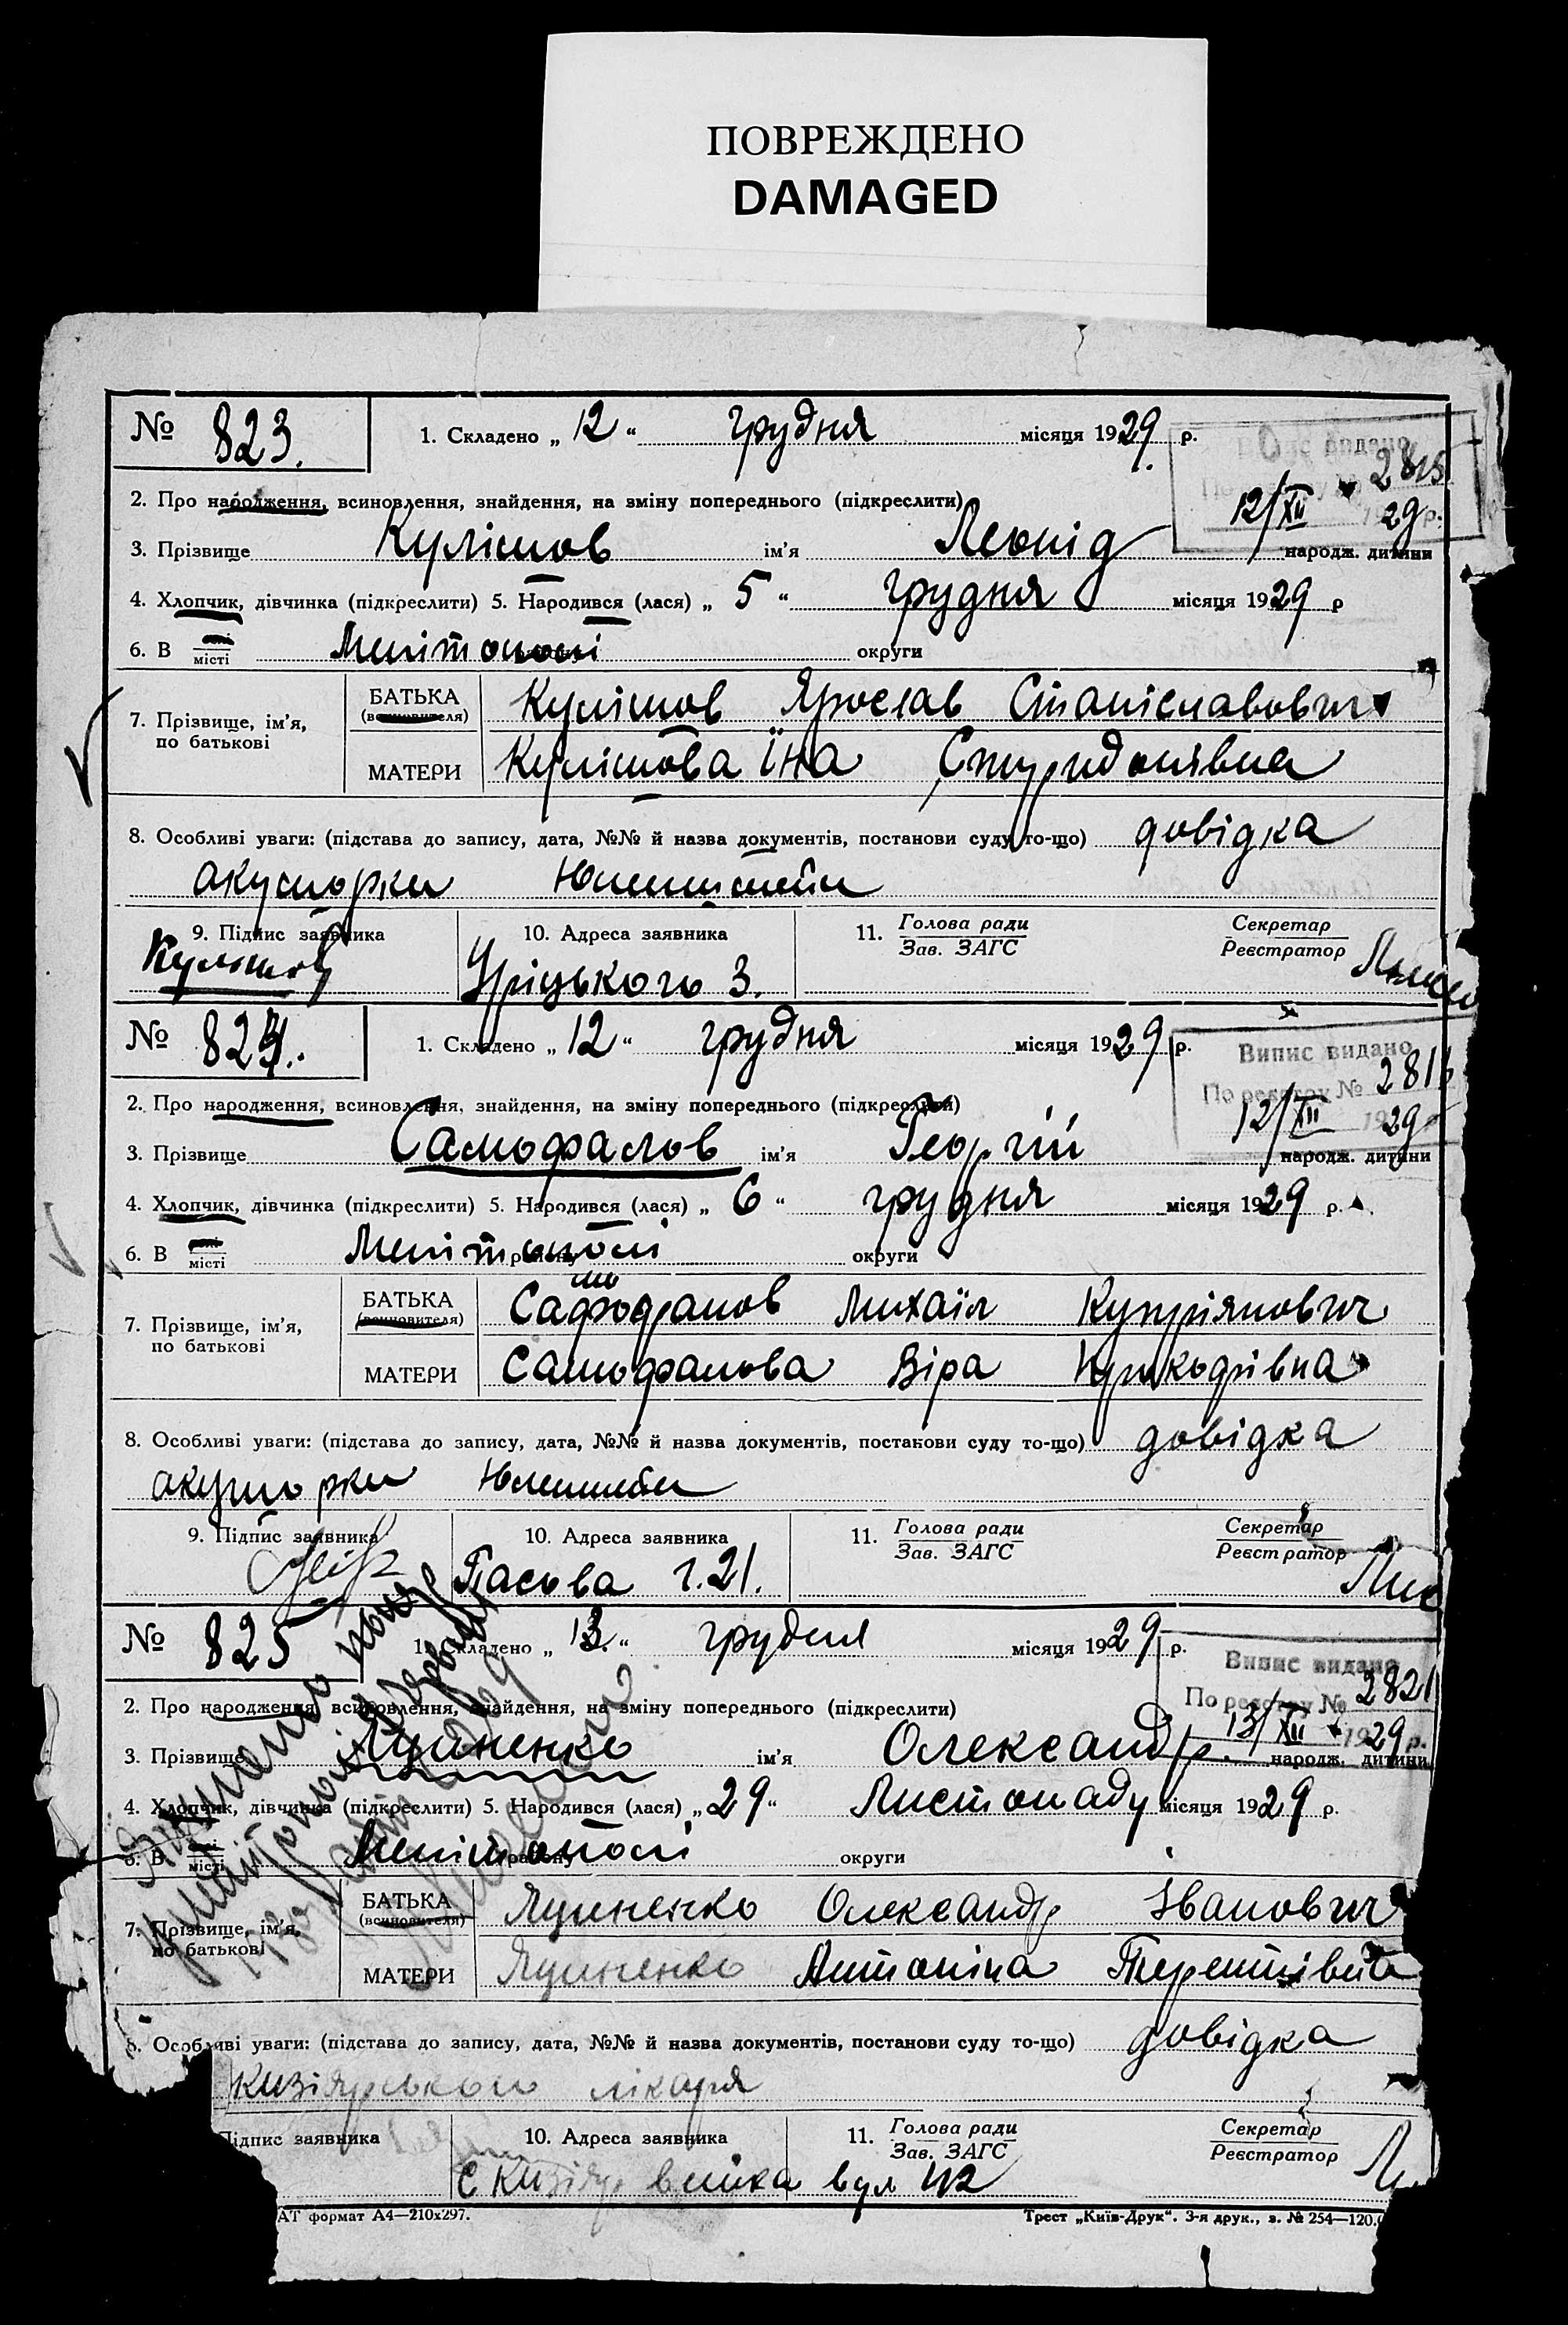 ПОВРЕЖДЕНО
DAMAGED
№ 823. 1. Складено „ 12 “ грудня місяця 1929 р.
Випис видано
По реєстру № 2815
12/XII 1929 р.
2. Про народження, всиновлення, знайдення, на зміну попереднього (підкреслити)
3. Прізвище Кулішов ім’я Леонід народж. дитини
4. Хлопчик, дівчинка (підкреслити) 5. Народився (лася) „ 5 “ грудня місяця 1929 р
6. В селі місті Мелітополі округи
7. Прізвище, ім’я, по батькові
БАТЬКА (всиновителя) Кулішов Ярослав Станіславович
МАТЕРИ Кулішова Їна Спиридонівна
8. Особливі уваги: (підстава до запису, дата, №№ й назва документів, постанови суду то-що) довідка
акушорки
9. Підпис заявника 10. Адреса заявника 11. Голова ради Зав. ЗАГС Секретар Реєстратор
Кулішов Уріцького 3.
№ 824. 1. Складено „ 12 “ грудня місяця 1929 р.
Випис видано
По реєстру № 2816
12/XII 1929
2. Про народження, всиновлення, знайдення, на зміну попереднього (підкреслити)
3. Прізвище Самофалов ім’я Георгій народж. дитини
4. Хлопчик, дівчинка (підкреслити) 5. Народився (лася) „ 6 “ грудня місяця 1929 р.
6. В селі місті Мелітополі району округи
7. Прізвище, ім’я, по батькові
БАТЬКА (всиновителя) Самофалов Михаїл Купріянович
МАТЕРИ Самофалова Віра
8. Особливі уваги: (підстава до запису, дата, №№ й назва документів, постанови суду то-що) довідка
акушорки
9. Підпис заявника 10. Адреса заявника 11. Голова ради Зав. ЗАГС Секретар Реєстратор
21.
№ 825 1. Складено „ 13. “ грудня місяця 1929 р.
Випис видано
По реєстру № 2821
13/XII 1929 р.
2. Про народження, всиновлення, знайдення, на зміну попереднього (підкреслити)
3. Прізвище Яциненко ім’я Олександр. народж. дитини
4. Хлопчик, дівчинка (підкреслити) 5. Народився (лася) „ 29 “ Листопаду місяця 1929 р.
6. В селі місті Мелітополі району округи
7. Прізвище, ім’я, по батькові
БАТЬКА (всиновителя) Яциненко Олександр Іванович
МАТЕРИ Яциненко Антоніна Терентіївна
8. Особливі уваги: (підстава до запису, дата, №№ й назва документів, постанови суду то-що) довідка
Кизіярського лікаря
Підпис заявника 10. Адреса заявника 11. Голова ради Зав. ЗАГС Секретар Реєстратор
с Кизіяр вул
АТ формат А4—210х297. Трест „Київ-Друк“. 3-я друк., з. № 254—120.